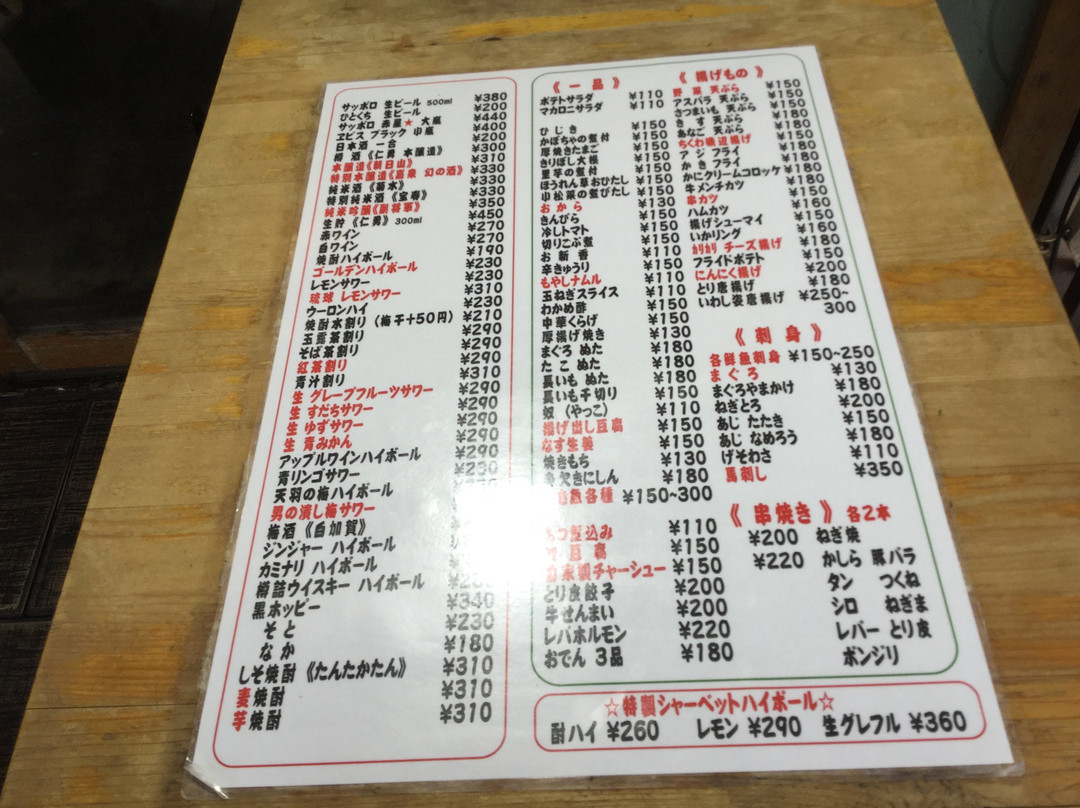 サッポロ 生ビール 500ml ¥380
ひとくち 生ビール ¥200
サッポロ 赤星★ 大瓶 ¥440
ヱビス ブラック 小瓶 ¥400
日本酒 一合 ¥200
樽酒《仁勇 本醸造》 ¥300
本醸造《朝日山》 ¥310
特別本醸造《嘉泉 幻の酒》 ¥330
純米酒《菊水》 ¥330
特別純米酒《宝寿》 ¥330
純米吟醸《蔵将軍》 ¥350
生貯《仁勇》300ml ¥450
赤ワイン ¥270
白ワイン ¥270
焼酎ハイボール ¥190
ゴールデンハイボール ¥230
レモンサワー ¥230
琉球 レモンサワー ¥310
ウーロンハイ ¥230
焼酎水割り(梅干+50円) ¥210
玉露茶割り ¥290
そば茶割り ¥290
紅茶割り ¥290
青汁割り ¥310
生 グレープフルーツサワー ¥290
生 すだちサワー ¥290
生 ゆずサワー ¥290
生 青みかん ¥290
アップルワインハイボール ¥290
青リンゴサワー
天羽の梅ハイボール
男の潰し梅サワー
梅酒《白加賀》
ジンジャー ハイボール
カミナリ ハイボール
樽詰ウイスキー ハイボール
黒ホッピー ¥340
そと ¥230
なか ¥180
しそ焼酎《たんたかたん》 ¥310
麦焼酎 ¥310
芋焼酎 ¥310
《 一 品 》
ポテトサラダ ¥110
マカロニサラダ ¥110
ひじき ¥150
かぼちゃの煮付 ¥150
厚焼きたまご ¥150
きりぼし大根 ¥150
里芋の煮付 ¥150
ほうれん草おひたし ¥150
小松菜の煮びたし ¥150
おから ¥130
きんぴら ¥150
冷しトマト ¥150
切りこぶ煮 ¥150
お新香 ¥150
辛きゅうり ¥150
もやしナムル ¥110
玉ねぎスライス ¥110
わかめ酢 ¥150
中華くらげ ¥150
厚揚げ焼き ¥130
まぐろ ぬた ¥180
たこ ぬた ¥180
長いも ぬた ¥180
長いも千切り ¥150
奴(やっこ) ¥110
揚げ出し豆腐 ¥150
なす生姜 ¥150
焼きもち ¥130
身欠きにしん ¥180
魚各種 ¥150~300
つ煮込み ¥110
豆腐 ¥150
自家製チャーシュー ¥150
とり皮餃子 ¥200
牛せんまい ¥200
レバホルモン ¥220
おでん 3品 ¥180
《 揚げもの 》
野菜 天ぷら ¥150
アスパラ 天ぷら ¥150
さつまいも 天ぷら ¥150
きす 天ぷら ¥180
あなご 天ぷら ¥180
ちくわ磯辺揚げ ¥150
アジ フライ ¥180
かき フライ ¥180
かにクリームコロッケ ¥180
牛メンチカツ ¥180
串カツ ¥160
ハムカツ ¥150
揚げシューマイ ¥160
いかリング ¥180
カリカリ チーズ揚げ ¥150
フライドポテト ¥150
にんにく揚げ ¥200
とり唐揚げ ¥180
いわし姿唐揚げ ¥250~
300
《 刺 身 》
各鮮魚刺身 ¥150~250
まぐろ ¥130
まぐろやまかけ ¥180
ねぎとろ ¥200
あじ たたき ¥150
あじ なめろう ¥180
げそわさ ¥110
馬刺し ¥350
《 串焼き 》各2本
¥200 ねぎ焼
¥220 かしら 豚バラ
タン つくね
シロ ねぎま
レバー とり皮
ボンジリ
☆特製シャーベットハイボール☆
酎ハイ ¥260 レモン ¥290 生グレフル ¥360